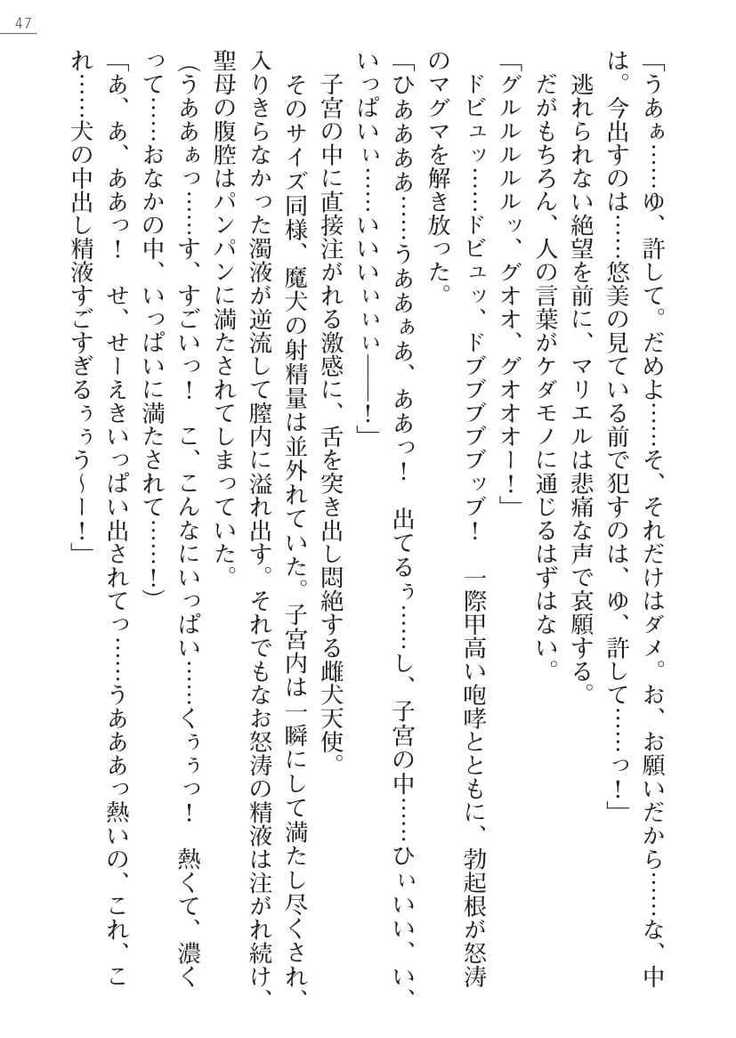 47
「うあぁ……ゆ、許して。だめよ……そ、それだけはダメ。お、お願いだから……な、中
は。今出すのは……悠美の見ている前で犯すのは、ゆ、許して……っ！」
逃れられない絶望を前に、マリエルは悲痛な声で哀願する。
だがもちろん、人の言葉がケダモノに通じるはずはない。
「グルルルルルッ、グオオ、グオオオー！」
ドビュッ……ドビュッ、ドブブブブブッブ！　一際甲高い咆哮とともに、勃起根が怒涛
のマグマを解き放った。
「ひぁぁぁぁ……うああぁあ、ああっ！　出てるぅ……し、子宮の中……ひぃいい、い、
いっぱいぃ……いいいいぃぃ――！」
子宮の中に直接注がれる激感に、舌を突き出し悶絶する雌犬天使。
そのサイズ同様、魔犬の射精量は並外れていた。子宮内は一瞬にして満たし尽くされ、
入りきらなかった濁液が逆流して膣内に溢れ出す。それでもなお怒涛の精液は注がれ続け、
聖母の腹腔はパンパンに満たされてしまっていた。
（うああぁっ……す、すごいっ！　こ、こんなにいっぱい……くぅぅっ！　熱くて、濃く
って……おなかの中、いっぱいに満たされて……！）
「あ、あ、ああっ！　せ、せーえきいっぱい出されてっ……うあああっ熱いの、これ、こ
れ……犬の中出し精液すごすぎるぅぅう～ー！」